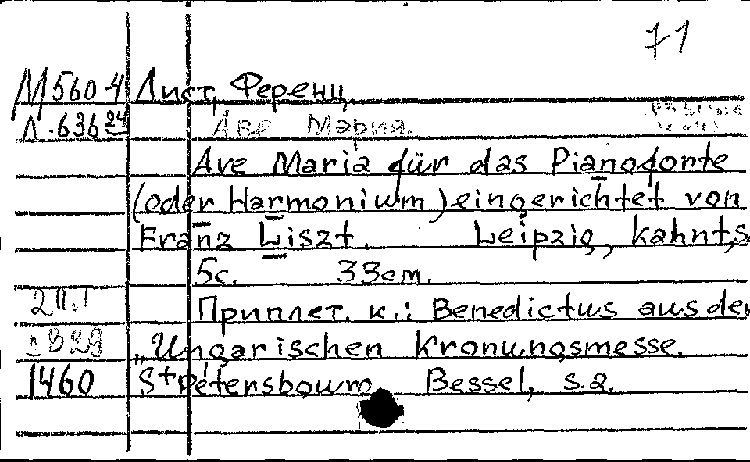 71
М560-4 Лист, Ференц
Л-636 24 Аве Мария.
Ave Maria für das Pianoforte
(oder Harmonium) eingerichtet von
Franz Liszt. Leipzig, Kahnt, s
5c. 33cm.
2П.I Приплет. к.: Benedictus aus der
"Ungarischen Kronungsmesse.
1460 St Petersbourn Bessel, s.a.